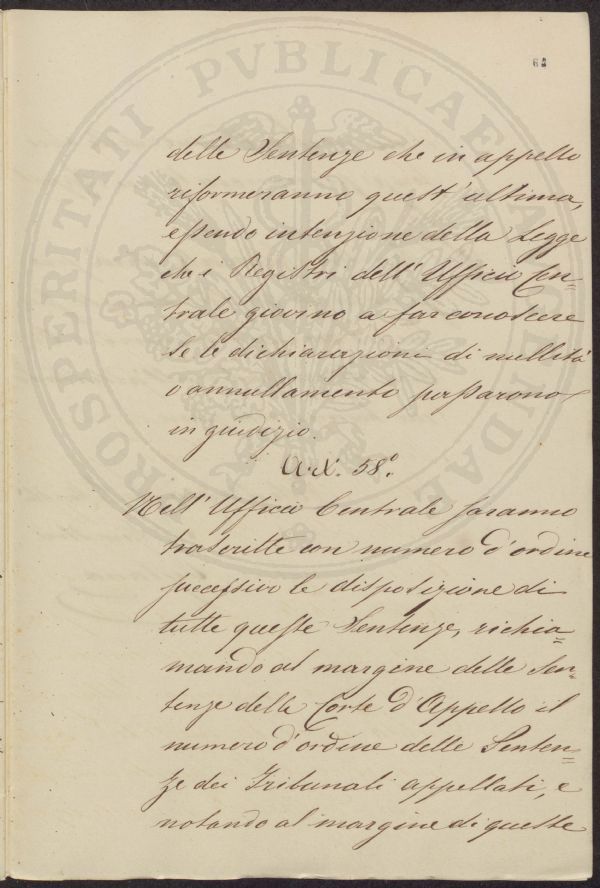 PROSPERITATI PVBLICAE AVGENDAE
delle Sentenze che in appello
riformeranno quest'ultima,
essendo intenzione della Legge
che i Registri dell'Officio Cen=
trale giovino a far conoscere
se le dichiarazioni di nullità
o annullamento passarono
in giudizio.
Art. 58°.
Nell'Officio Centrale saranno
trascritte con numero d'ordine
successivo le disposizione di
tutte queste Sentenze, richia=
mando al margine delle Sen=
tenze della Corte d'Appello il
numero d'ordine delle Senten=
ze dei Tribunali appellati, e
notando al margine di queste